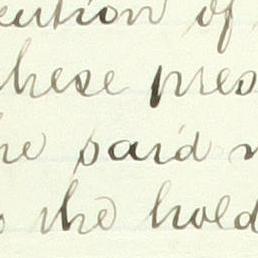 ecution of
these pres
he said
the hold